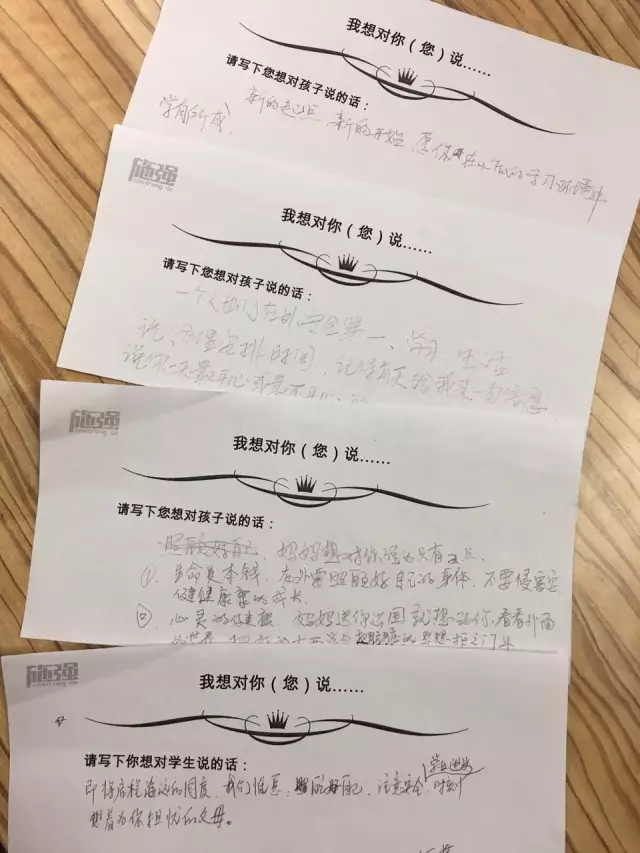 我想对你（您）说……
请写下您想对孩子说的话：
新的起点 新的开始 愿你在以后的学习环境中
学有所成
施强
我想对你（您）说……
请写下您想对孩子说的话：
一个人出门在外安全第一、学习 生活
说你一天最开心或最不开心
施强
我想对你（您）说……
请写下您想对孩子说的话：
照顾好自己，妈妈想对你说的只有2点
①、生命是本钱，在外要照顾好自己的身体，不要侵害它
健健康康的成长
② 心灵的健康，妈妈送你出国就想让你看看外面
的世界
施强
我想对你（您）说……
请写下你想对学生说的话：
即将启程 照顾好自己，注意安全，时刻
想着为你担忧的父母。